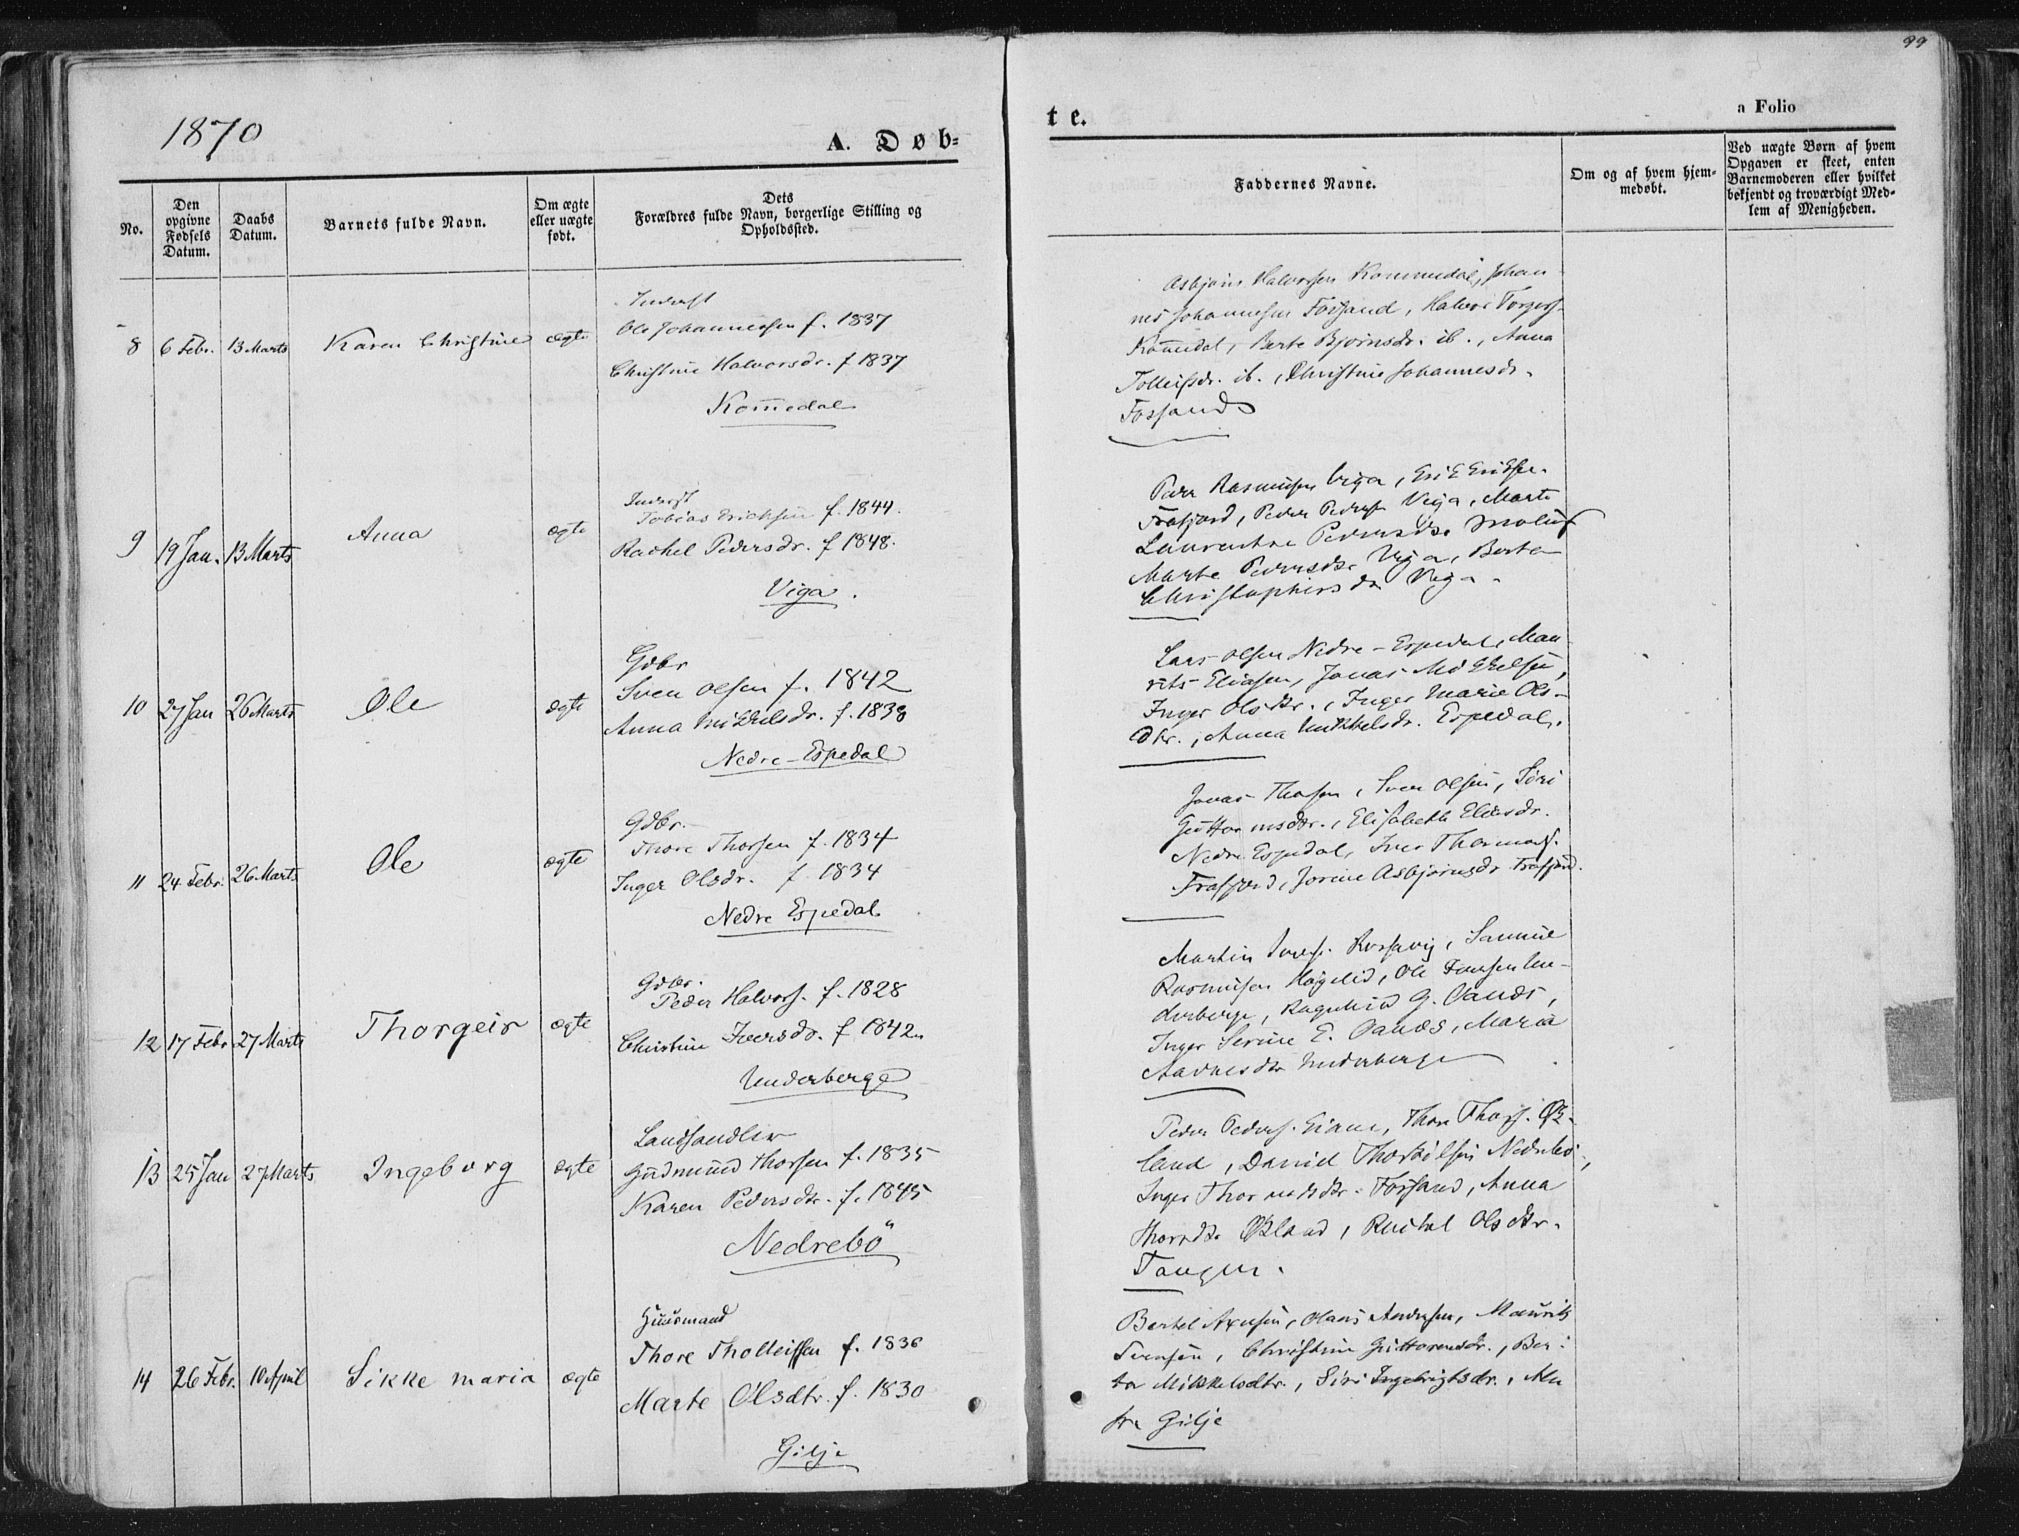 99
1870
A. Døb=
te.
a Folio
No.
Den opgivne Fødsels Datum.
Daabs Datum.
Barnets fulde Navn.
Om ægte eller uægte født.
Dets Forældres fulde Navn, borgerlige Stilling og Opholdssted.
Faddernes Navne.
Om og af hvem hjemmedøbt.
Ved uægte Børn af hvem Opgaven er skeet, enten Barnemoderen eller hvilket bekjendt og troværdigt Medlem af Menigheden.
8 6 Febr. 13 Marts Karen Christine ægte
Inderst
Ole Johannessen f. 1837
Christine Halvorsdr. f 1837
Kom̅edal
Asbjörn Halvorsen Kommedal, Johan
nes Johannessen Fossand, Halvor Torgers.
Kom̅edal, Berte Bjørnsdr. ib., Anna
Tolleifsdr. ib., Christine Johannesdr.
Fossand
9 19 Jan. 13 Marts Anna ægte
Inderst
Tobias Ericksen f. 1844.
Rachel Pedersdr. f 1848.
Viga.
Peder Rasmusen Viga, Erik Eriksen
Frafjord, Peder Peders. Viga, Marte
Laurentse Pedersdr.
Marte Pedersdr. Viga, Berte
Christophersdr Viga.
10 27 Jan 26 Marts Ole ægte
Gdbr
Sven Olsen f. 1842
Anna Mikkelsdr. f. 1838
Nedre-Espedal
Lars Olsen Nedre-Espedal, Mau
rits Eliasen, Jonas Mikkelsen,
Inger Olsdtr., Inger Marie Ols-
dtr., Anna Mikkelsdr. Espedal.
11 24 Febr. 26 Marts Ole ægte
Gdbr.
Thore Thorsen f. 1834
Inger Olsdr. f 1834
Nedre Espedal
Jonas Thosen, Sven Olsen, Siri
Guttormsdtr., Elisabeth Eliasdr.
Nedre Espedal, Iver Thormods.
Frafjord, Jorine Asbjörnsdr Frafjord.
12 17 Febr 27 Marts Thorgeir ægte
Gdbr.
Peder Halvors. f. 1828
Christine Iversdr. f 1842
Underberge
Martin Rossavig, Samuel
Rasmusen Høgelid, Ole Tomsen Un-
derberge, Ragnhild G. Oands,
Inger Serine E. Oands, Maria
Aadnesdtr Underberge
13 25 Jan 27 Marts Ingeborg ægte
Landhandler
Gudmund Thorsen f. 1835
Karen Pedersdtr. f. 1845
Nedrebö
Peder Peders. Eiane, Thore Thors. Øk-
land, Daniel Thorkilsen Nedrebö,
Inger Thormodsdtr. Fossand, Anna
Thorsdtr Økland, Rachel Olsdtr.
Tangen.
14 26 Febr. 10 April Sikke Maria ægte
Huusmand
Thore Tholleifsen f. 1836
Marte Olsdtr. f. 1830
Gilje
Bertel Axensen, Olaus Andersen, Maurits
Svensen, Christine Guttormsdr., Ber-
ta Mikkelsdtr., Siri Ingebrigtsdr., Alle
fra Gilje